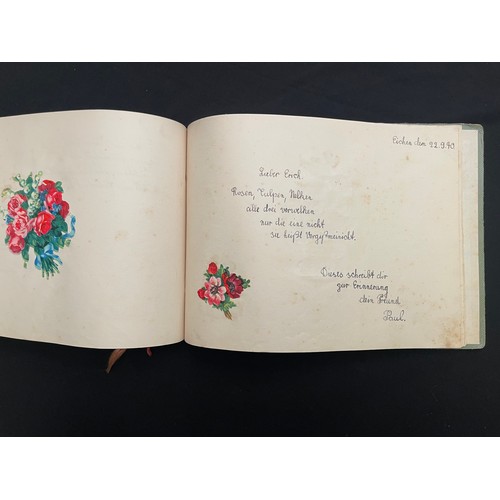 Eichen den 22.9.40
Lieber Erich.
Rosen, Tulpen, Nelken
alle drei verwelken
nur die eine nicht
sie heißt Vergißmeinicht.
Dieses schreibt dir
zur Erinnerung
dein Freund
Paul.